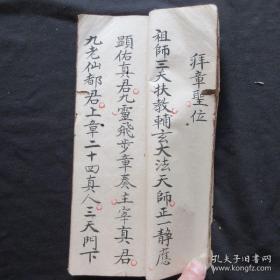 拜章聖位
祖師三天扶教輔玄大法天師正一靜應
顯佑真君九靈飛步章奏主宰真君
九老仙都君上章二十四真人三天門下